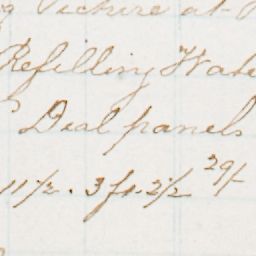 Picture at
Refilling Wate
Deal panels
11 1/2 . 3 ft. 2 1/2 29/-